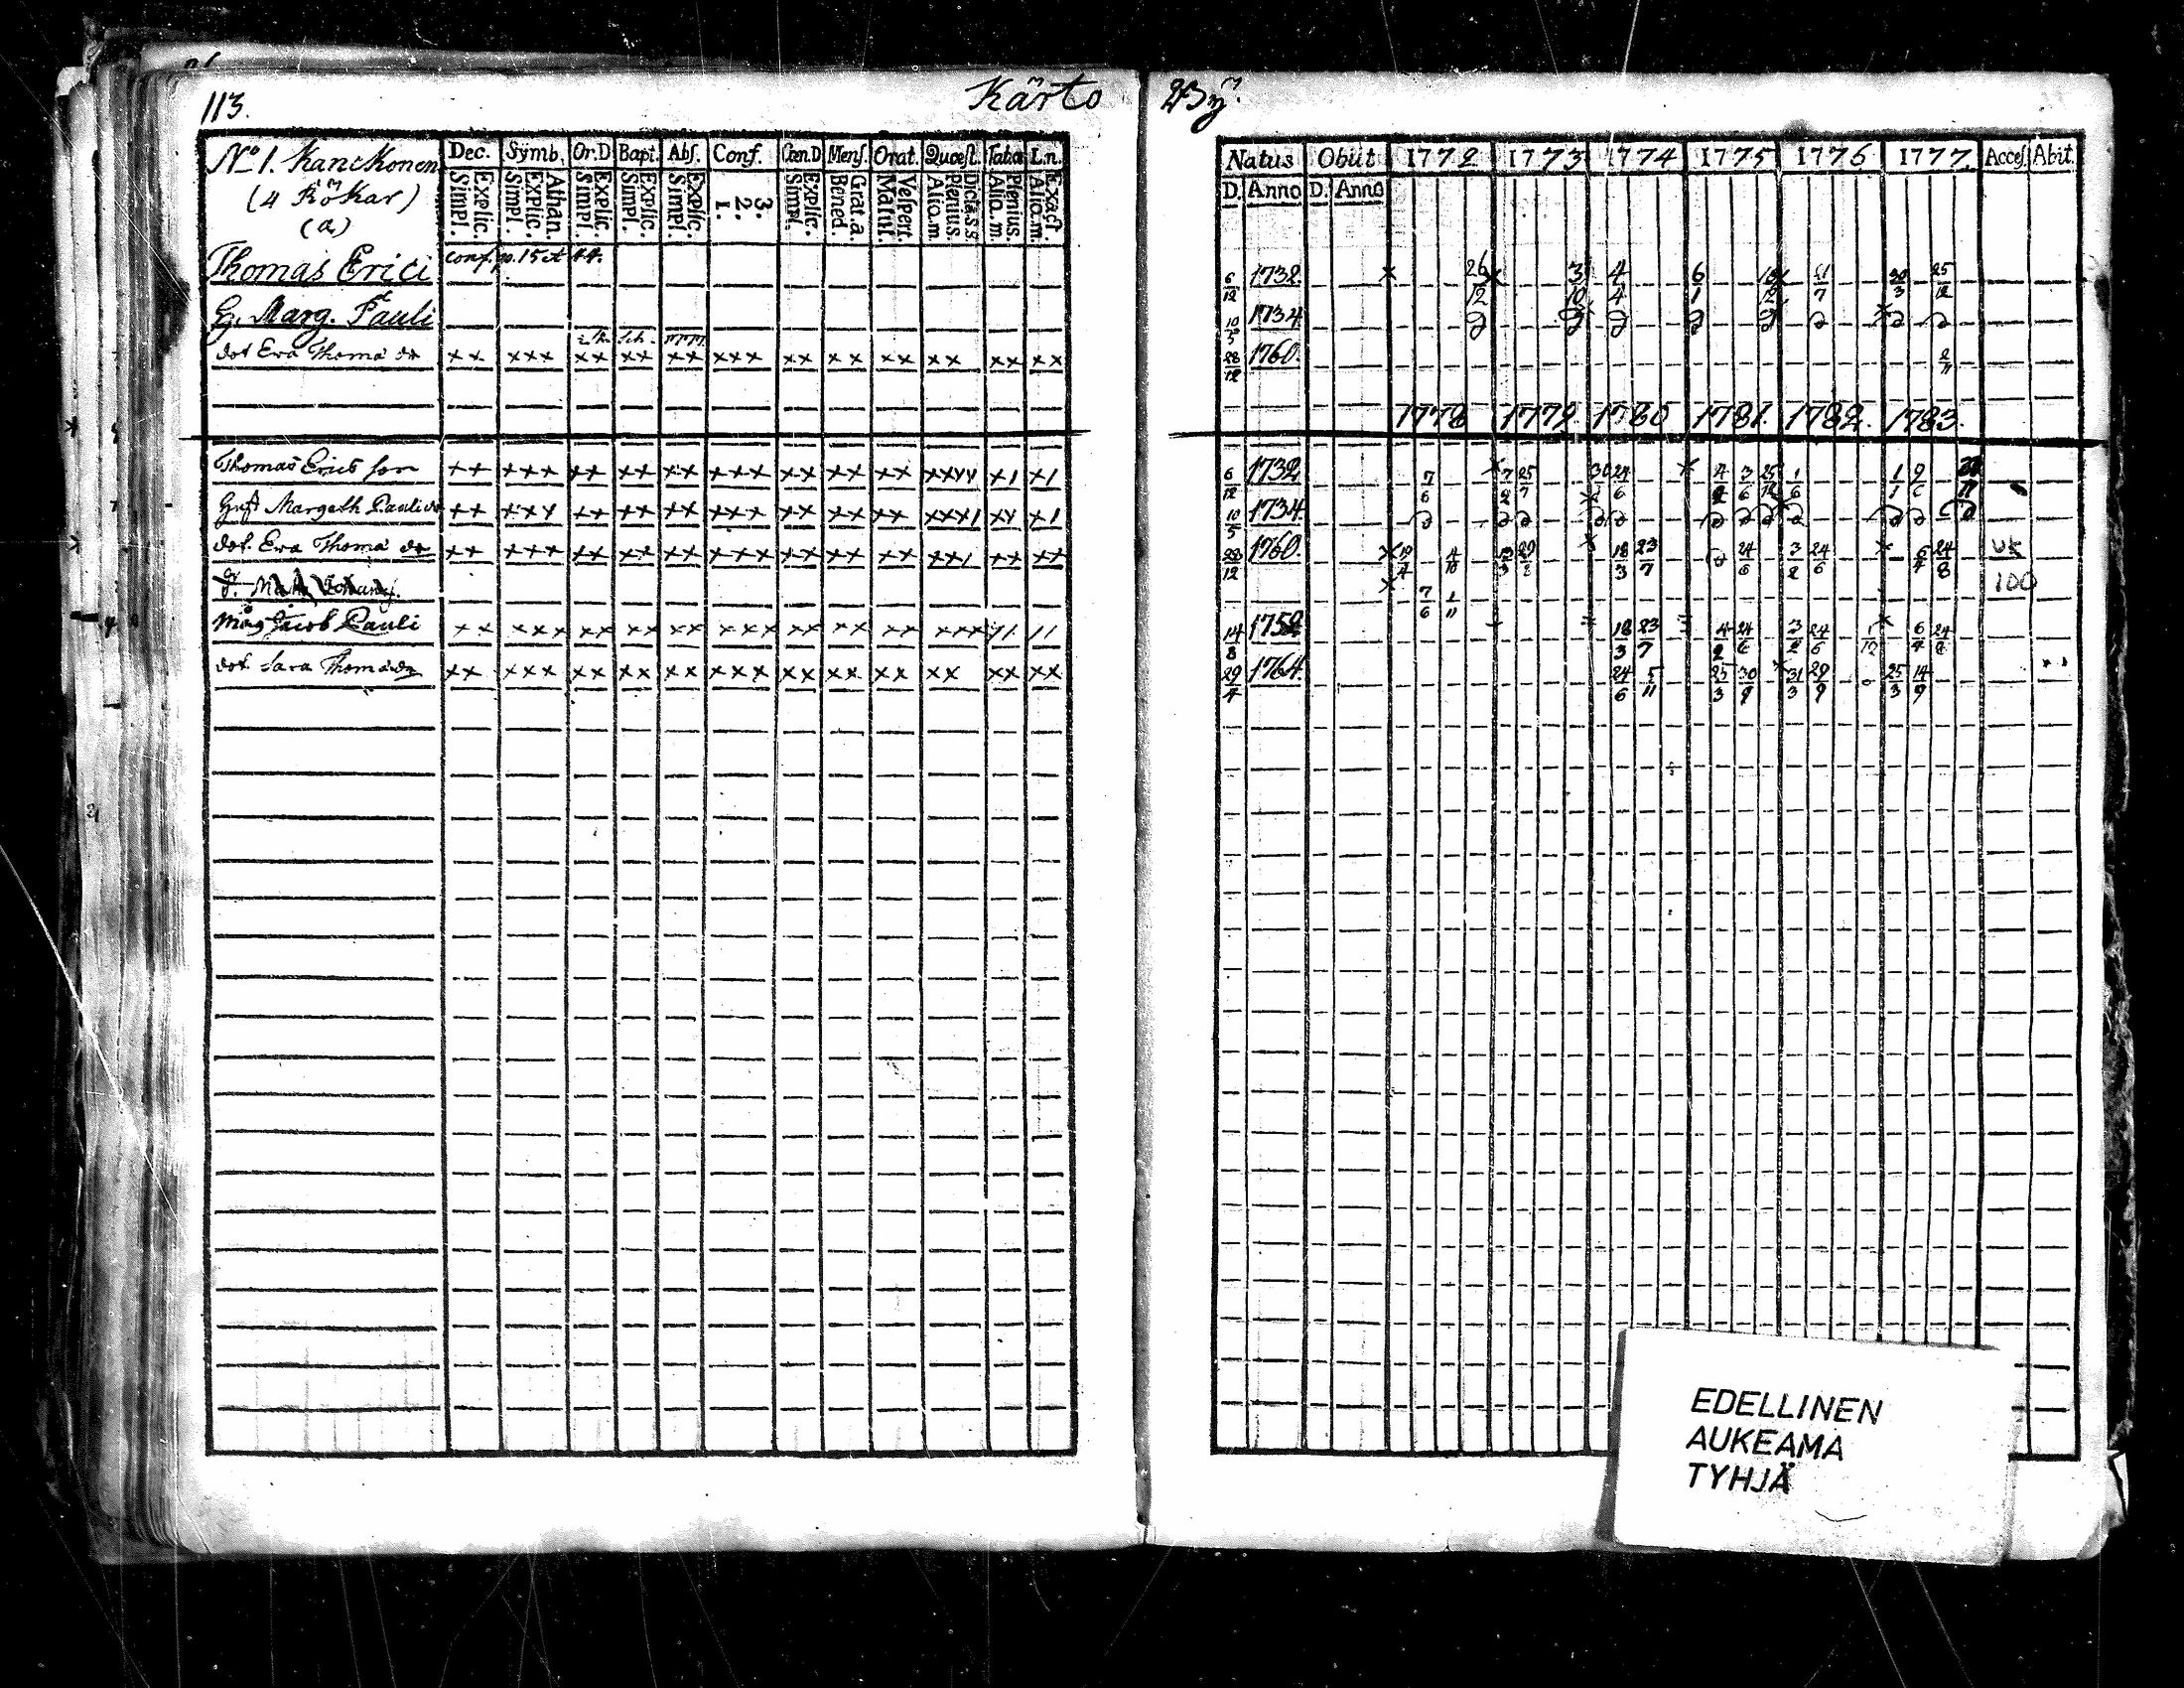 113. Kärto By.
No 1. Kanckonen
(4 Rökar)
(a)
Dec. Symb. Or.D Bapt. Abs. Conf. Cœn.D Mens. Orat. Quæst. Tabœ L.n.
Simpl. Explic. Simpl. Explic. Athan. Simpl. Explic. Simpl. Explic. Simpl. Explic. 1. 2. 3. Simpl. Explic. Bened. Grat.a. Matut. Vespert. Alio.m. Plenius. Dict.s.s. Alio.m. Plenius. Alio.m. Exact.
Natus Obiit 1772 1773 1774 1775 1776 1777 Acces. Abit.
D. Anno D. Anno
Thomas Erici conf. p. 15 et 44. 6/12 1732. 26/12 3/10 4/4 6/1 7 30/3 25/12
H. Marg. Pauli 10/5 1734
dot Eva Thomæ dr xx xxx xx xx xx xxx xx xx xx xx xx xx 28/12 1760. 2/11
1778 1779 1780 1781. 1782. 1783.
Thomas Erics son xx xxx xx xx xx xxx xx xx xx x1 x1 6/12 1732 7/6 25/7 24/6 3/6 1/6
Hust Margeth Pauli dr xx xxx xx xx xx xxx xx xx xx xxx1 xx x1 10/5 1734.
dot. Eva Thomæ dr xx xxx xx xx xx xxx xx xx xx xx1 xx xx 28/12 1760. 18/3 23/7 24/6 3/2 24/6 24/8 UK
7/6 1/11 100
Måg Jacob Pauli xx xxx xx xx xx xxx xx xx xx xxx 11 11 14/8 1752 18/3 23/7 4/2 24/6 3/2 24/6 1/12
dot. Sara Thomæ dr xx xxx xx xx xx xxx xx xx xx xx xx xx 29/4 1764. 24/6 5/11 25/3 30/9 31/3 29/9 25/3 14/9
EDELLINEN
AUKEAMA
TYHJÄ